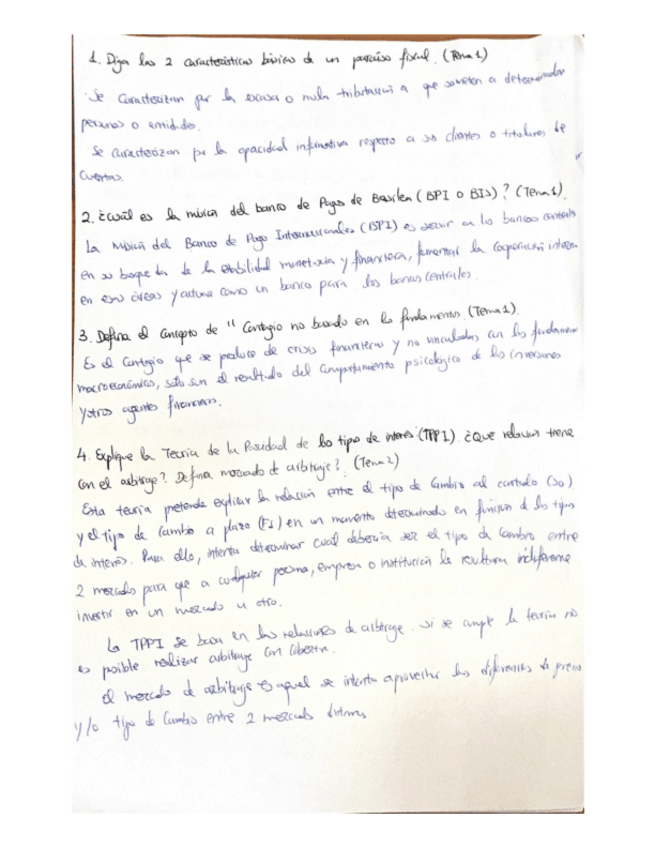 1. Diga las 2 características básicas de un paraíso fiscal. (Tema 1)
· Se caracterizan por la escasa o nula tributación a que someten a determinadas
personas o entidades.
· Se caracterizan por la opacidad informativa respecto a sus clientes o titulares de
cuentas.
2. ¿Cuál es la misión del banco de Pagos de Basilea (BPI O BIS)? (Tema 1)
La Misión del Banco de Pago Internacionales (BPI) es servir a los bancos centrales
en su busqueda de la estabilidad monetaria y financiera, fomentar la cooperación interna
en esas áreas y actuar como un banco para los bancos centrales.
3. Defina el concepto de "Contagio no basado en los fundamentos. (Tema 1).
Es el Contagio que se produce de crisis financieras y no vinculadas con los fundamen
macroeconómicos, solo son el resultado del comportamiento psicológico de los inversores
y otros agentes financieros.
4. Explique la Teoría de la Paridad de los tipos de interés (TPPI). ¿Que relación tiene
con el arbitraje? Defina mercado de arbitraje?. (Tema 2)
Esta teoría pretende explicar la relación entre el tipo de Cambio al contado (So)
y el tipo de Cambio a plazo (F1) en un momento determinado en función de los tipos
de interés. Para ello, intenta determinar cuál debería ser el tipo de Cambio entre
2 mercados para que a cualquier persona, empresa o institución le resultara indiferente
invertir en un mercado u otro.
La TPPI se basa en las relaciones de arbitraje. si se cumple la teoría no
es posible realizar arbitraje con cobertura.
El mercado de arbitraje es aquel se intenta aprovechar las diferencias de precio
y/o tipo de Cambio entre 2 mercados distintos